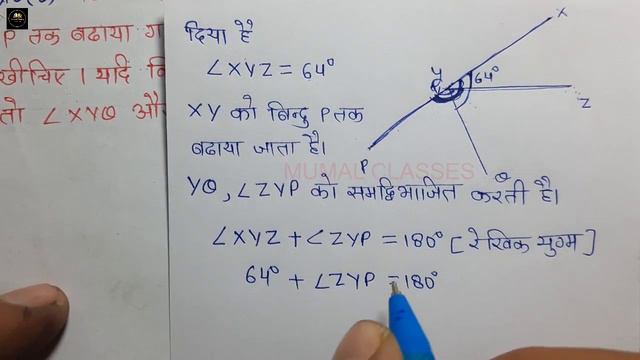 P तक बढाया ग
खीचिए । यदि
तो ∠XYQ औ
दिया है
∠XYZ = 64°
XY को बिन्दु P तक
बढाया जाता है।
YQ, ∠ZYP को समद्विभाजित करती है।
∠XYZ + ∠ZYP = 180° [रेखिक युग्म]
64° + ∠ZYP = 180°
X
Y
64°
Z
P
Q
MUMAL CLASSES